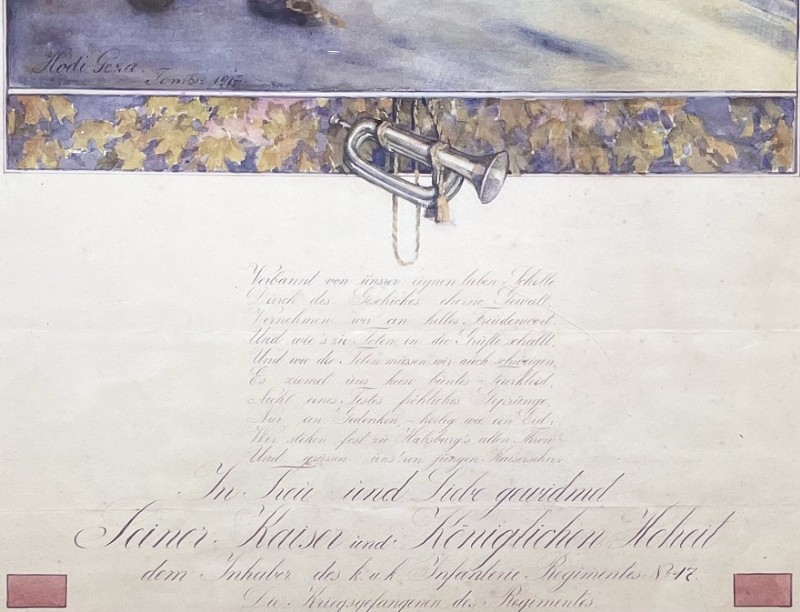 Hódi Geza.
Tomsk 1917
Verbannt von unsrer eignen lieben Scholle
Durch des Geschickes eherne Gewalt,
Vernehmen wir ein helles Freudenwort
Und wie's zu Toten in die Grüfte schallt.
Und wie die Toten müssen wir auch schweigen,
Es ziemet uns kein buntes Feierkleid,
Nicht eines Festes fröhliches Gepränge,
Nur ein Gedenken, - heilig wie ein Eid:
Wir stehen fest zu Habsburg's altem Thron
Und grüssen uns'ren jungen Kaisersohn.
In Treu und Liebe gewidmet
Seiner Kaiser und Königlichen Hoheit
dem Inhaber des k.u.k. Infanterie Regimentes №
Die Kriegsgefangenen des Regimentes.